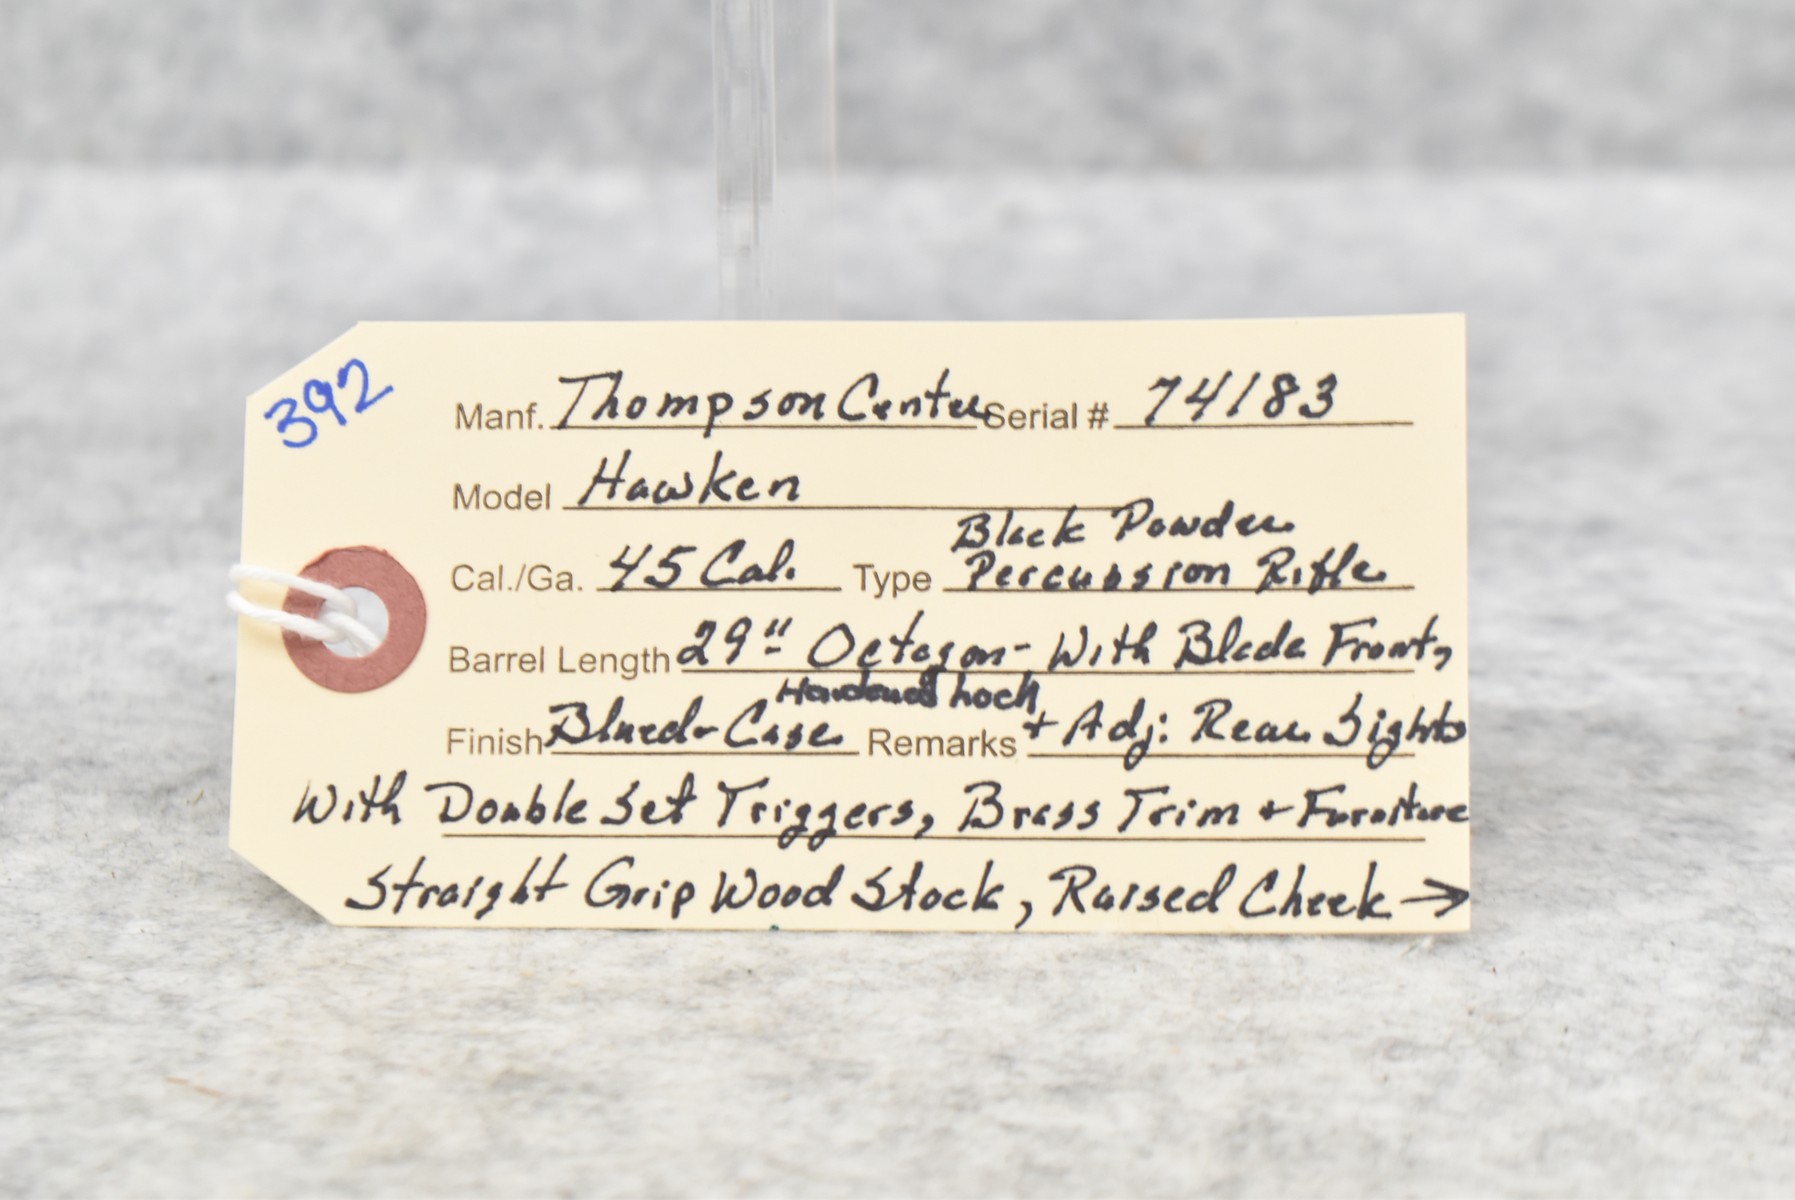 392
Manf. Thompson Center Serial # 74183
Model Hawken
Black Powder
Cal./Ga. 45 Cal. Type Percussion Rifle
Barrel Length 29" Octagon - With Blade Front,
Hardened Lock
Finish Blued - Case Remarks + Adj: Rear Sights
With Double Set Triggers, Brass Trim + Furniture
Straight Grip Wood Stock, Raised Cheek →